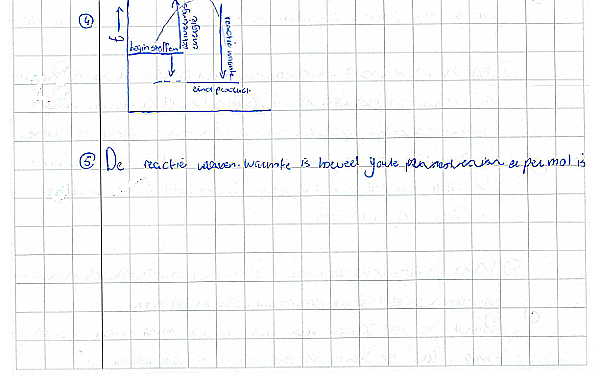 ④
E
beginstoffen
activerings
energie
reactie warmte
eindproduct
⑤ De reactie warmte is hoeveel joule er per mol is